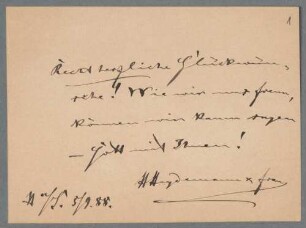 1
Recht herzliche Glückwün-
sche! Wie wir uns freun,
können wir kaum sagen
– Gott mit Ihnen!
Heydemann u. Frau
5/9. 88.